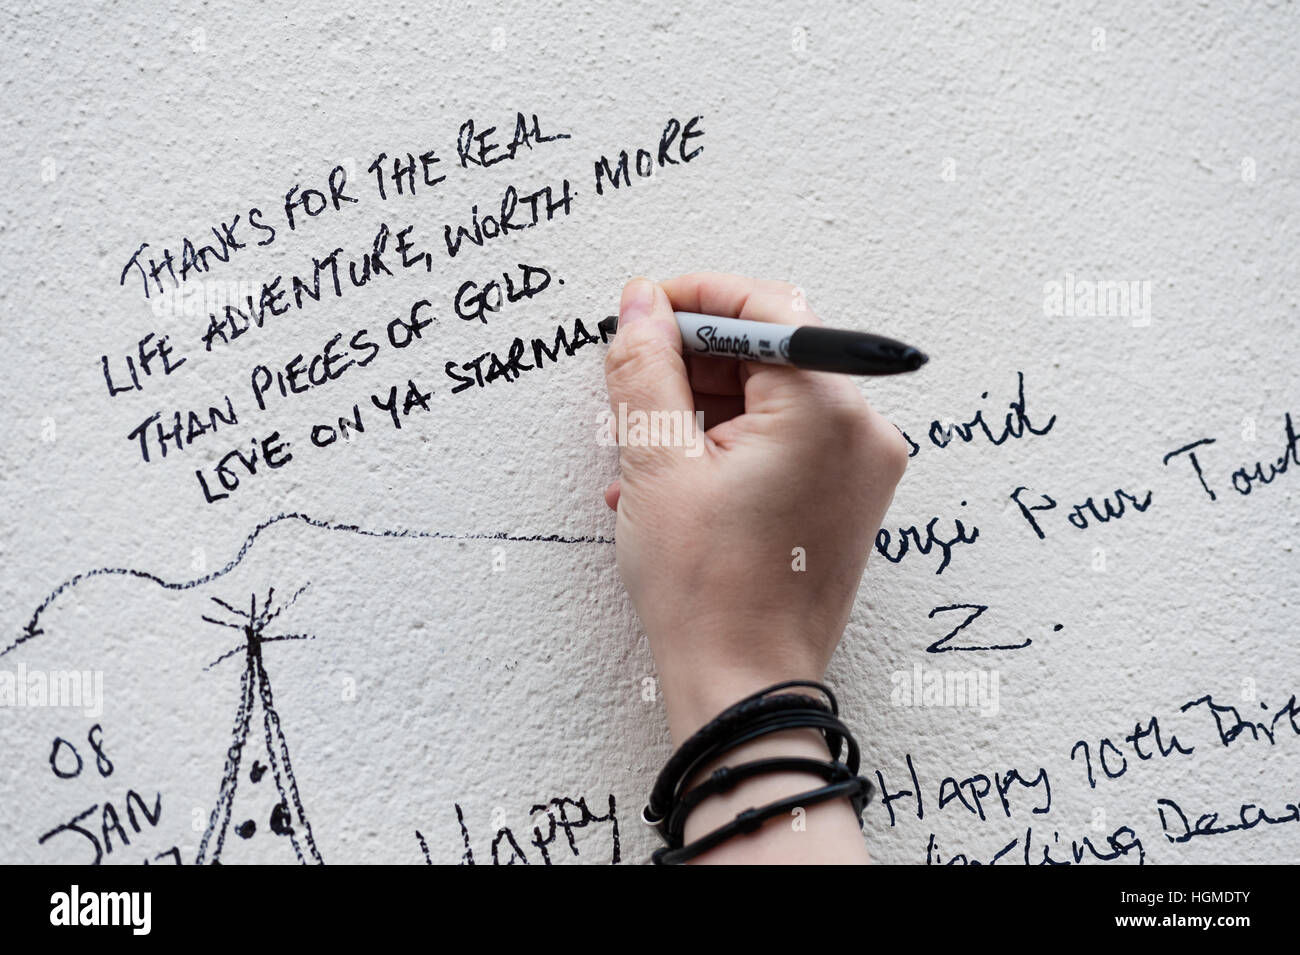 THANKS FOR THE REAL
LIFE ADVENTURE, WORTH MORE
THAN PIECES OF GOLD.
LOVE ON YA STARMAN
Sharpie
David
Pour Tout
Z.
08
JAN
17
HAPPY
Happy 70th Birt
Darling Dear
alamy
Image ID: HGMDTY
www.alamy.com